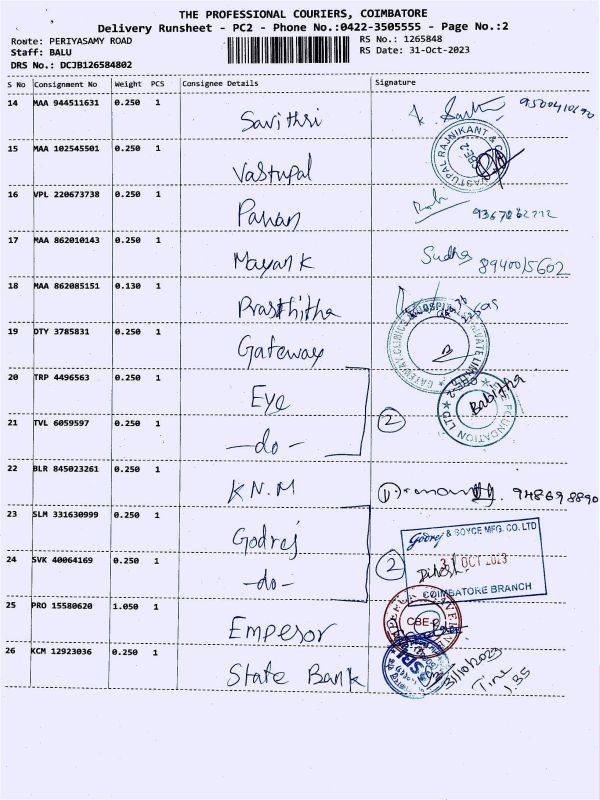 THE PROFESSIONAL COURIERS, COIMBATORE
Delivery Runsheet - PC2 - Phone No.:0422-3505555 - Page No.:2
Route: PERIYASAMY ROAD RS No.: 1265848
Staff: BALU RS Date: 31-Oct-2023
DRS No.: DCJB126584802
S No Consignment No Weight PCS Consignee Details Signature
14 MAA 944511631 0.250 1 Savithri
15 MAA 102545501 0.250 1 Vastupal VASTUPAL RAJNIKANT & CBE-2
16 VPL 220673738 0.250 1 Pawan
17 MAA 862010143 0.250 1 Mayank Sudha 8940015602
18 MAA 862085151 0.130 1 Prasthitha
19 DTY 3785831 0.250 1 Gateway GATEWAY CLINICS HOSPITAL PRIVATE LIMITED CBE-2
20 TRP 4496563 0.250 1 Eye Babitha FOUNDATION LTD
21 TVL 6059597 0.250 1 -do- 2
22 BLR 845023261 0.250 1 K.N.M 9486988890
23 SLM 331630999 0.250 1 Godrej Godrej & BOYCE MFG. CO. LTD
24 SVK 40064169 0.250 1 -do- 2 31 OCT 2023 COIMBATORE BRANCH
25 PRO 15580620 1.050 1 Emperor CBE-2
26 KCM 12923036 0.250 1 State Bank SBI 31/10/2023 Time 1.35